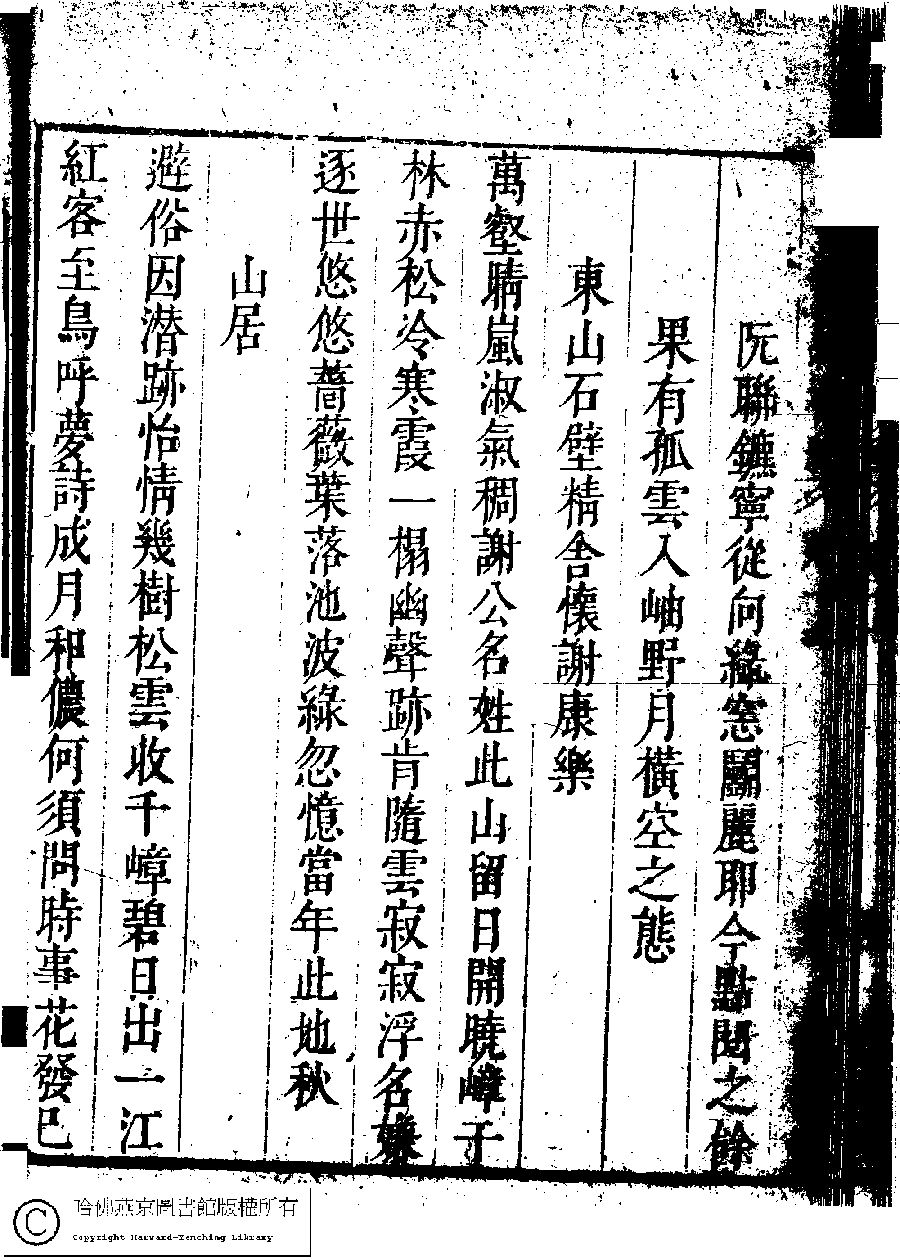 阮聯鑣寧從何緣窓鬭麗耶今點閱之餘
果有孤雲入岫野月橫空之態
東山石壁精舍懷謝康樂
萬壑晴嵐淑氣稠謝公名姓此山留日開曉嶂千
林赤松冷寒霞一榻幽聲跡肯隨雲寂寂浮名嫌
逐世悠悠薔薇葉落池波綠忽憶當年此地秋
山居
避俗因潛跡怡情幾樹松雲收千嶂碧日出一江
紅客至鳥呼夢詩成月和儂何須問時事花發已
哈佛燕京圖書館版權所有
Copyright Harvard-Yenching Library